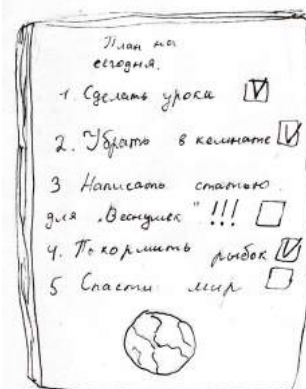 План на
сегодня.
1. Сделать уроки
2. Убрать в комнате
3 Написать статью
для „Веснушек" !!!
4. Покормить рыбок
5 Спасти мир